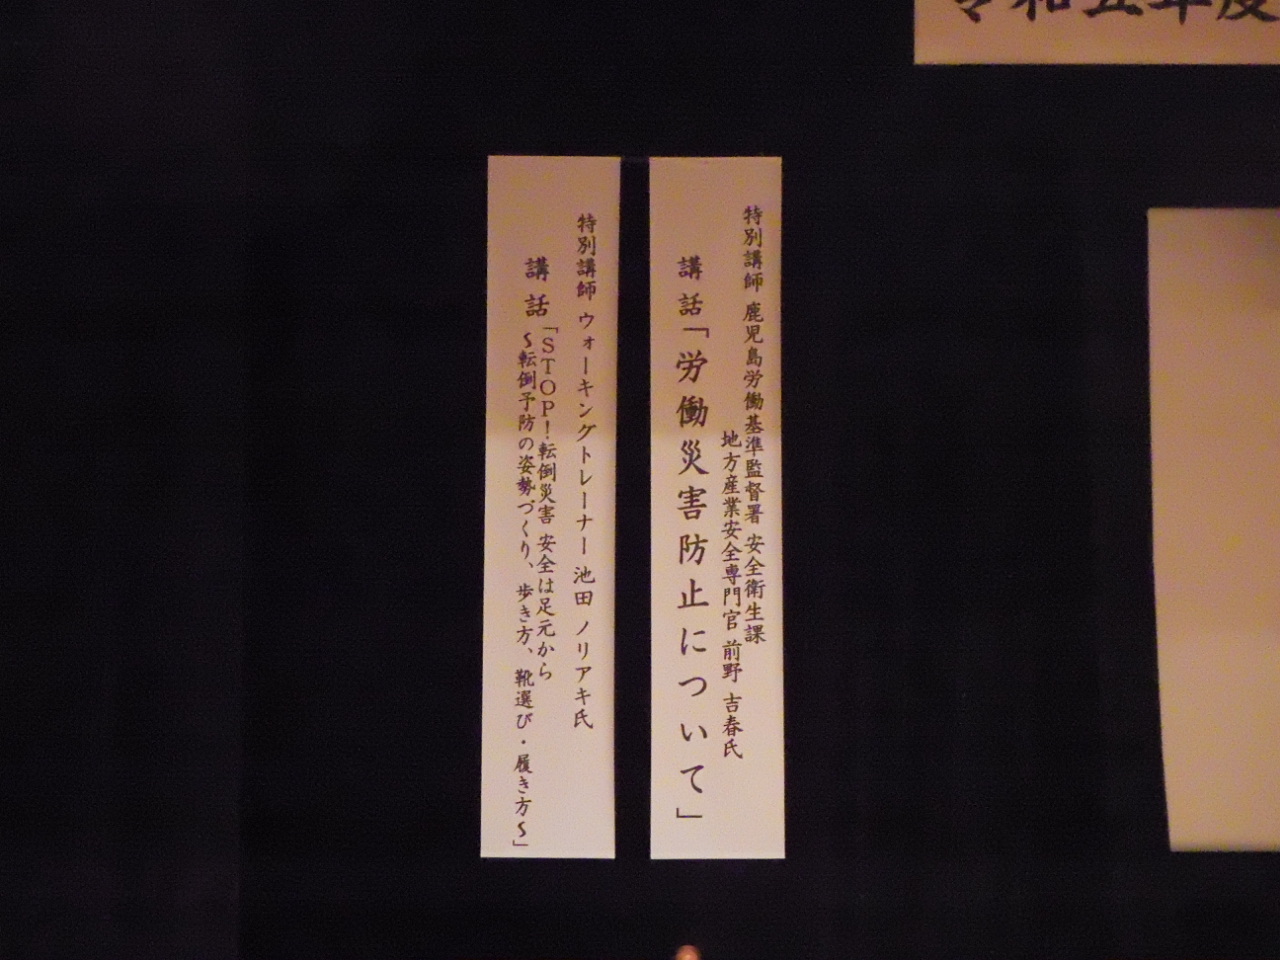 令和五年度
特別講師 鹿児島労働基準監督署 安全衛生課
地方産業安全専門官 前野 吉春氏
講話「労働災害防止について」
特別講師 ウォーキングトレーナー 池田 ノリアキ氏
講話「STOP!転倒災害 安全は足元から
～転倒予防の姿勢づくり、歩き方、靴選び・履き方～」